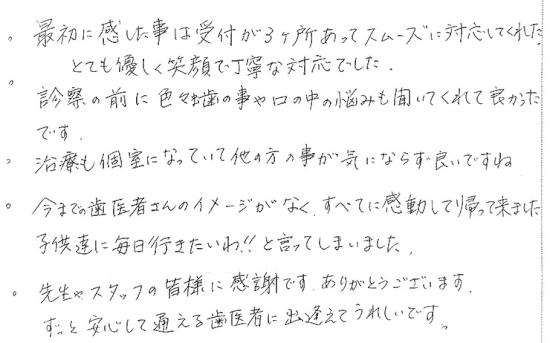 。最初に感じた事は受付が3ヶ所あってスムーズに対応してくれた
とても優しく笑顔で丁寧な対応でした.
。診察の前に色々歯の事や口の中の悩みも聞いてくれて良かった
です.
。治療も個室になっていて他の方の事が気にならず良いですね
。今までの歯医者さんのイメージがなく.すべてに感動して帰って来ました
子供達に毎日行きたいわ!!と言ってしまいました.
。先生やスタッフの皆様に感謝です.ありがとうございます.
ずっと安心して通える歯医者に出逢えてうれしいです。